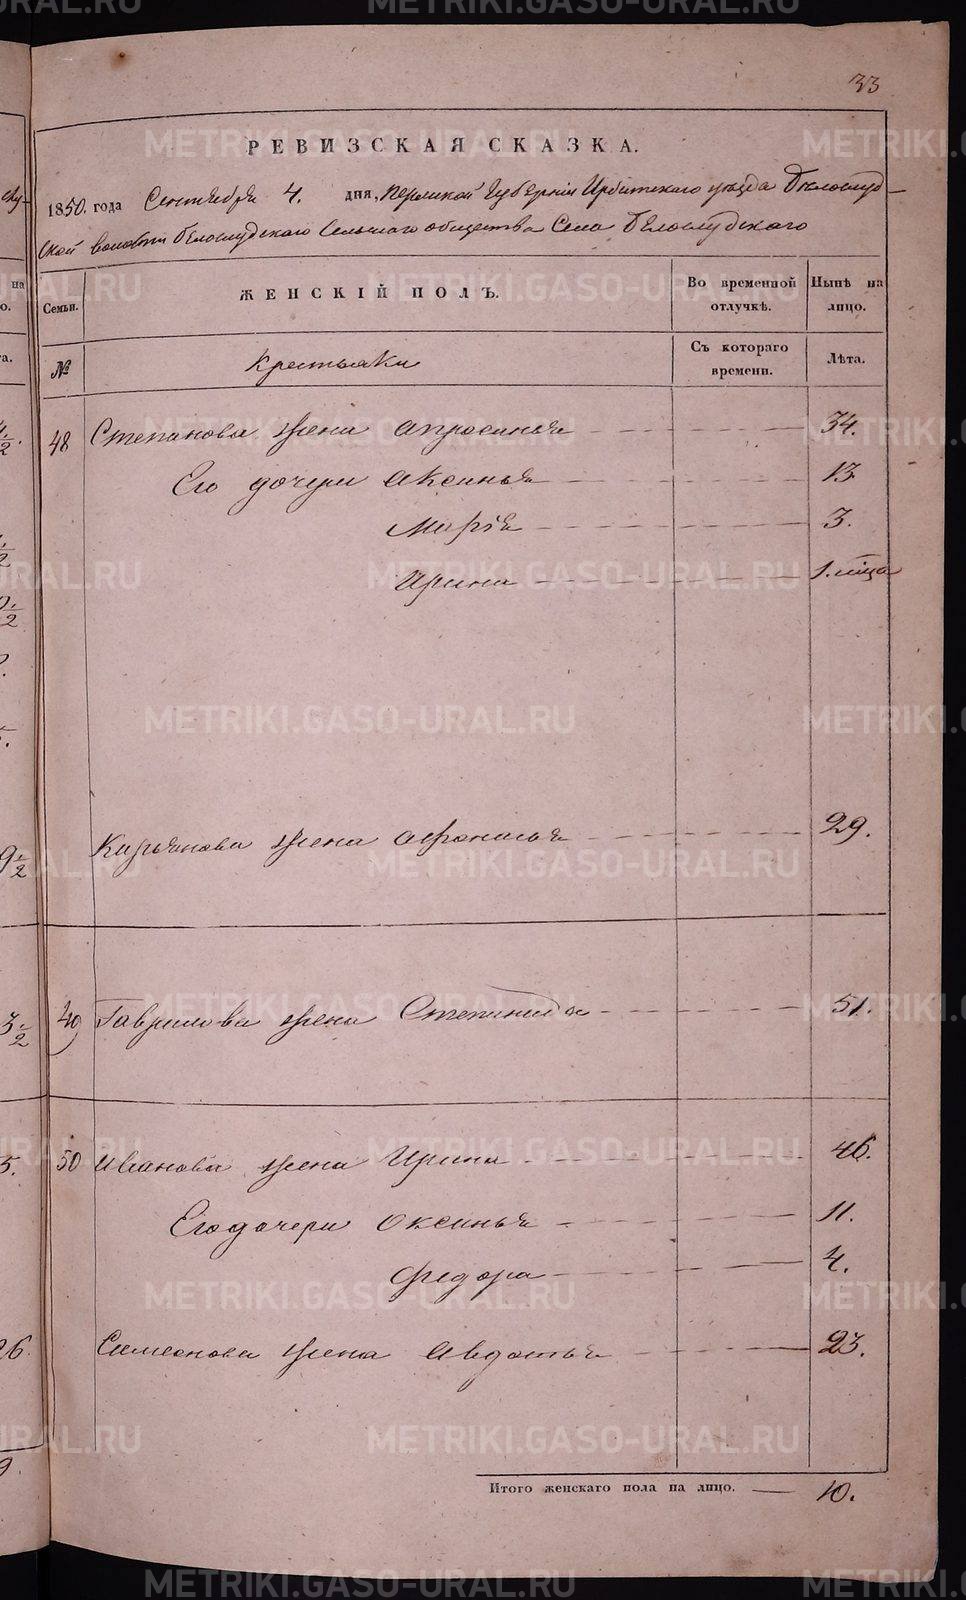 33
РЕВИЗСКАЯ СКАЗКА.
1850. года Сентября 4. дня, Пермской Губернии Ирбитскаго уѣзда Бѣлослуд-
ской волости Бѣлослудскаго Сельскаго общества Села Бѣлослудскаго
на
Семьи.
ЖЕНСКІЙ ПОЛЪ.
Во временной отлучкѣ.
Нынѣ на лицо.
№
Крестьянки
Съ котораго времени.
Лѣта.
48 Степанова жена Апросинья 34.
Его дочери Аксинья 13
Марія 3.
Ирина 1. мѣсца
Кирьянова жена Афонасья 29.
49 Гаврилова жена Степанида 51.
50 Иванова жена Ирина 46.
Его дочери Оксинья 11.
Федора 4.
Симеонова жена Авдотья 23.
Итого женскаго пола на лицо. 10.
METRIKI.GASO-URAL.RU